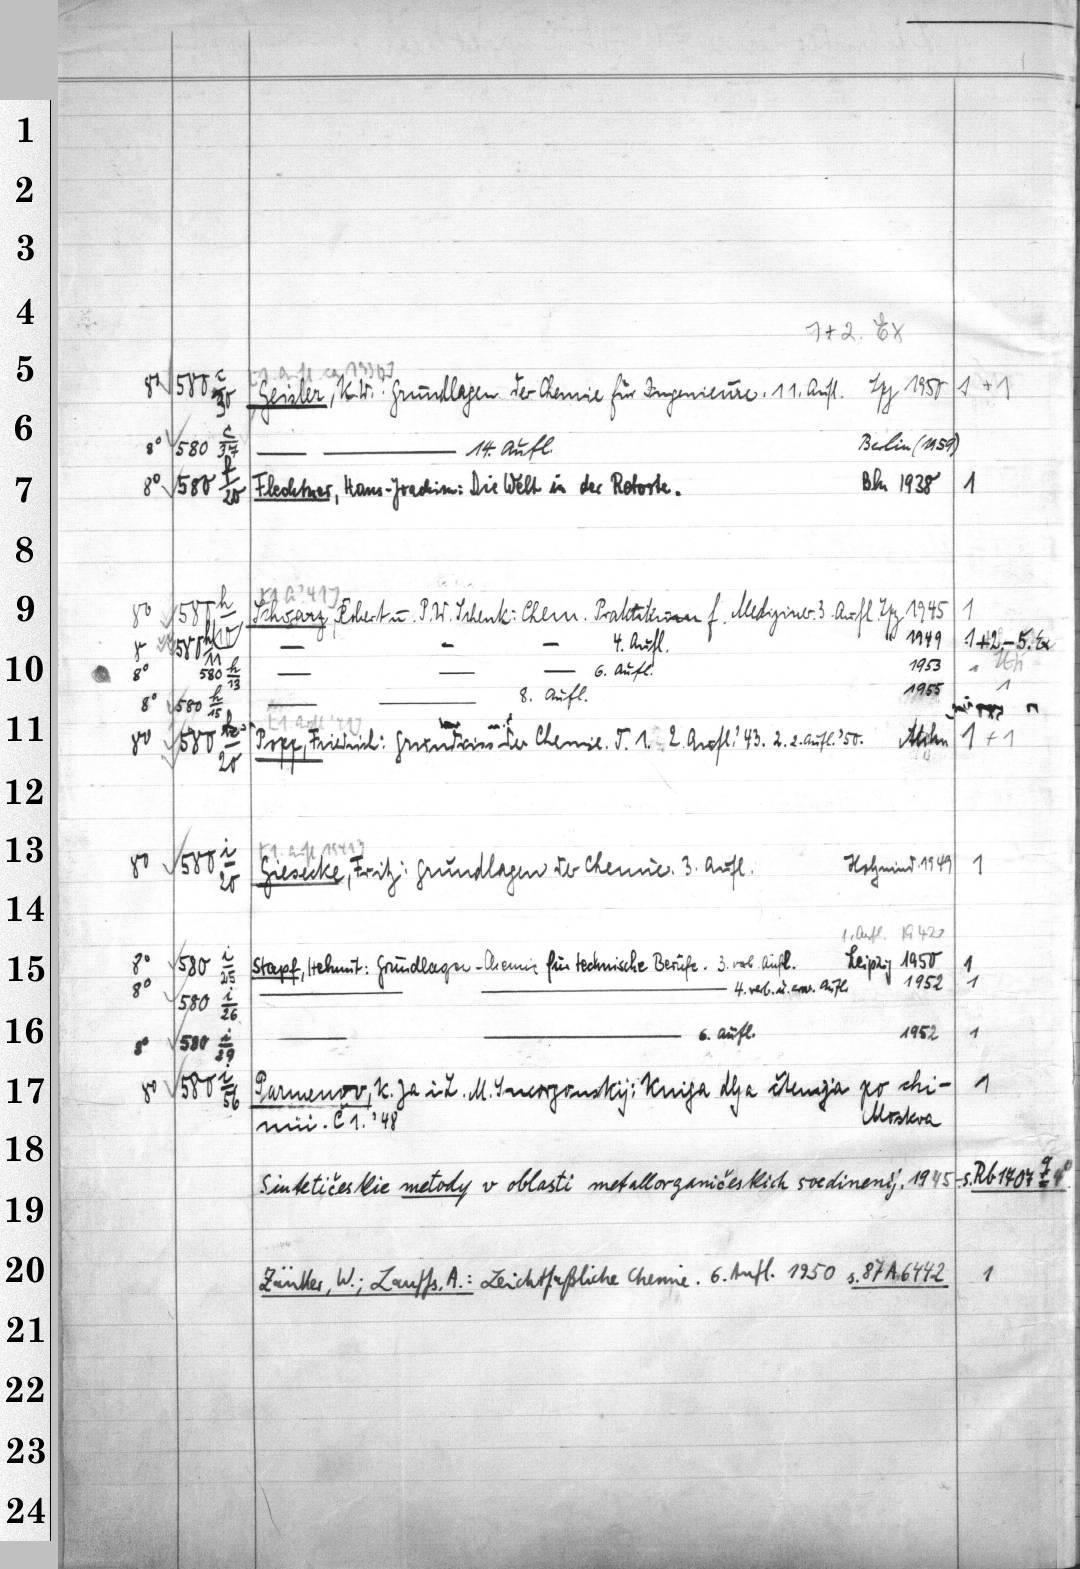 1
2
3
4
1+2. Ex
5
8° 580 c/30 Geisler, K.W.: Grundlagen der Chemie für Ingenieure. 11. Aufl. Lpg 1950 1 + 1
6
8° 580 c/37 — — 14. Aufl. Berlin (1959)
7
8° 580 f/20 Flechtner, Hans-Joachim: Die Welt in der Retorte. Bln 1938 1
8
[1. A. '41]
9
8° 580 h/10 Schwarz, Robert u. P.W. Schenk: Chem. Praktikum f. Mediziner. 3. Aufl. Lpg. 1945 1
8° 580 h/11 — — — 4. Aufl. 1949 1+2.-5. Ex
10
8° 580 h/13 — — — 6. Aufl. 1953
8° 580 h/15 — — 8. Aufl. 1955 1
11
8° 580 20 Popp, Friedrich: der Chemie. T. 1. 2. Aufl. '43. 2. 2. Aufl. '50. 1 + 1
12
[1. Aufl. 1941]
13
8° 580 i/20 Giesecke, Fritz: Grundlagen der Chemie. 3. Aufl. Holzmind. 1949 1
14
1. Aufl. 1942
15
8° 580 i/25 Stapf, Helmut: Grundlagen - Chemie für technische Berufe. 3. verb. Aufl. Leipzig 1950 1
8° 580 i/26 — — 4. verb. u. erw. Aufl. 1952 1
16
8° 580 i/29 — — 6. Aufl. 1952 1
17
8° 580 i/56 Parmenov, K. Ja i L. M. Smorgonskij: Kniga dlja čtenija po chi-
mii. Č 1. '48 Moskva 1
18
Sintetičeskie metody v oblasti metallorganičeskich soedinenij. 1945- s. Rb 1707 4°
19
20
Zäntler, W.; Lauffs, A.: Leichtfaßliche Chemie. 6. Aufl. 1950 s. 87 A 6442 1
21
22
23
24